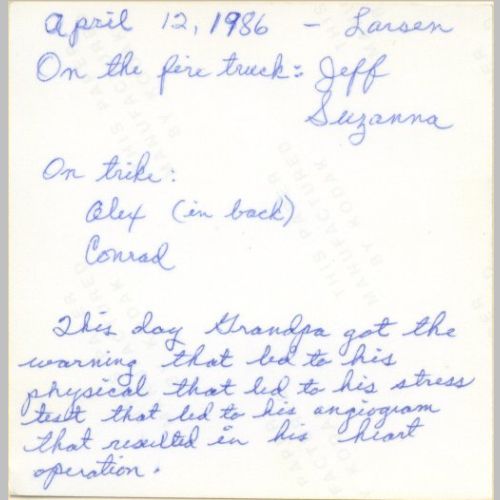 April 12, 1986 - Larsen
On the fire truck: Jeff
Suzanna
On trike:
Alex (in back)
Conrad
This day Grandpa got the
warning that led to his
physical that led to his stress
test that led to his angiogram
that resulted in his heart
operation.
THIS PAPER
MANUFACTURED
BY KODAK